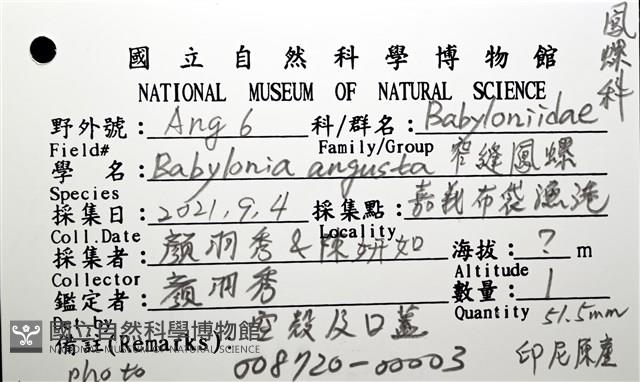 鳳螺科
國立自然科學博物館
NATIONAL MUSEUM OF NATURAL SCIENCE
野外號：Ang 6 科/群名：Babyloniidae
Field# Family/Group
學 名：Babylonia angusta 窄縫鳳螺
Species
採集日：2021.9.4 採集點：嘉義布袋漁港
Coll.Date Locality
採集者：顏羽秀 & 陳妍如 海拔：? m
Collector Altitude
鑑定者：顏羽秀 數量：1
Det.by Quantity 51.5mm
國立自然科學博物館
NATIONAL MUSEUM OF NATURAL SCIENCE
備註(Remarks)：空殼及口蓋
印尼原產
photo 008720-00003